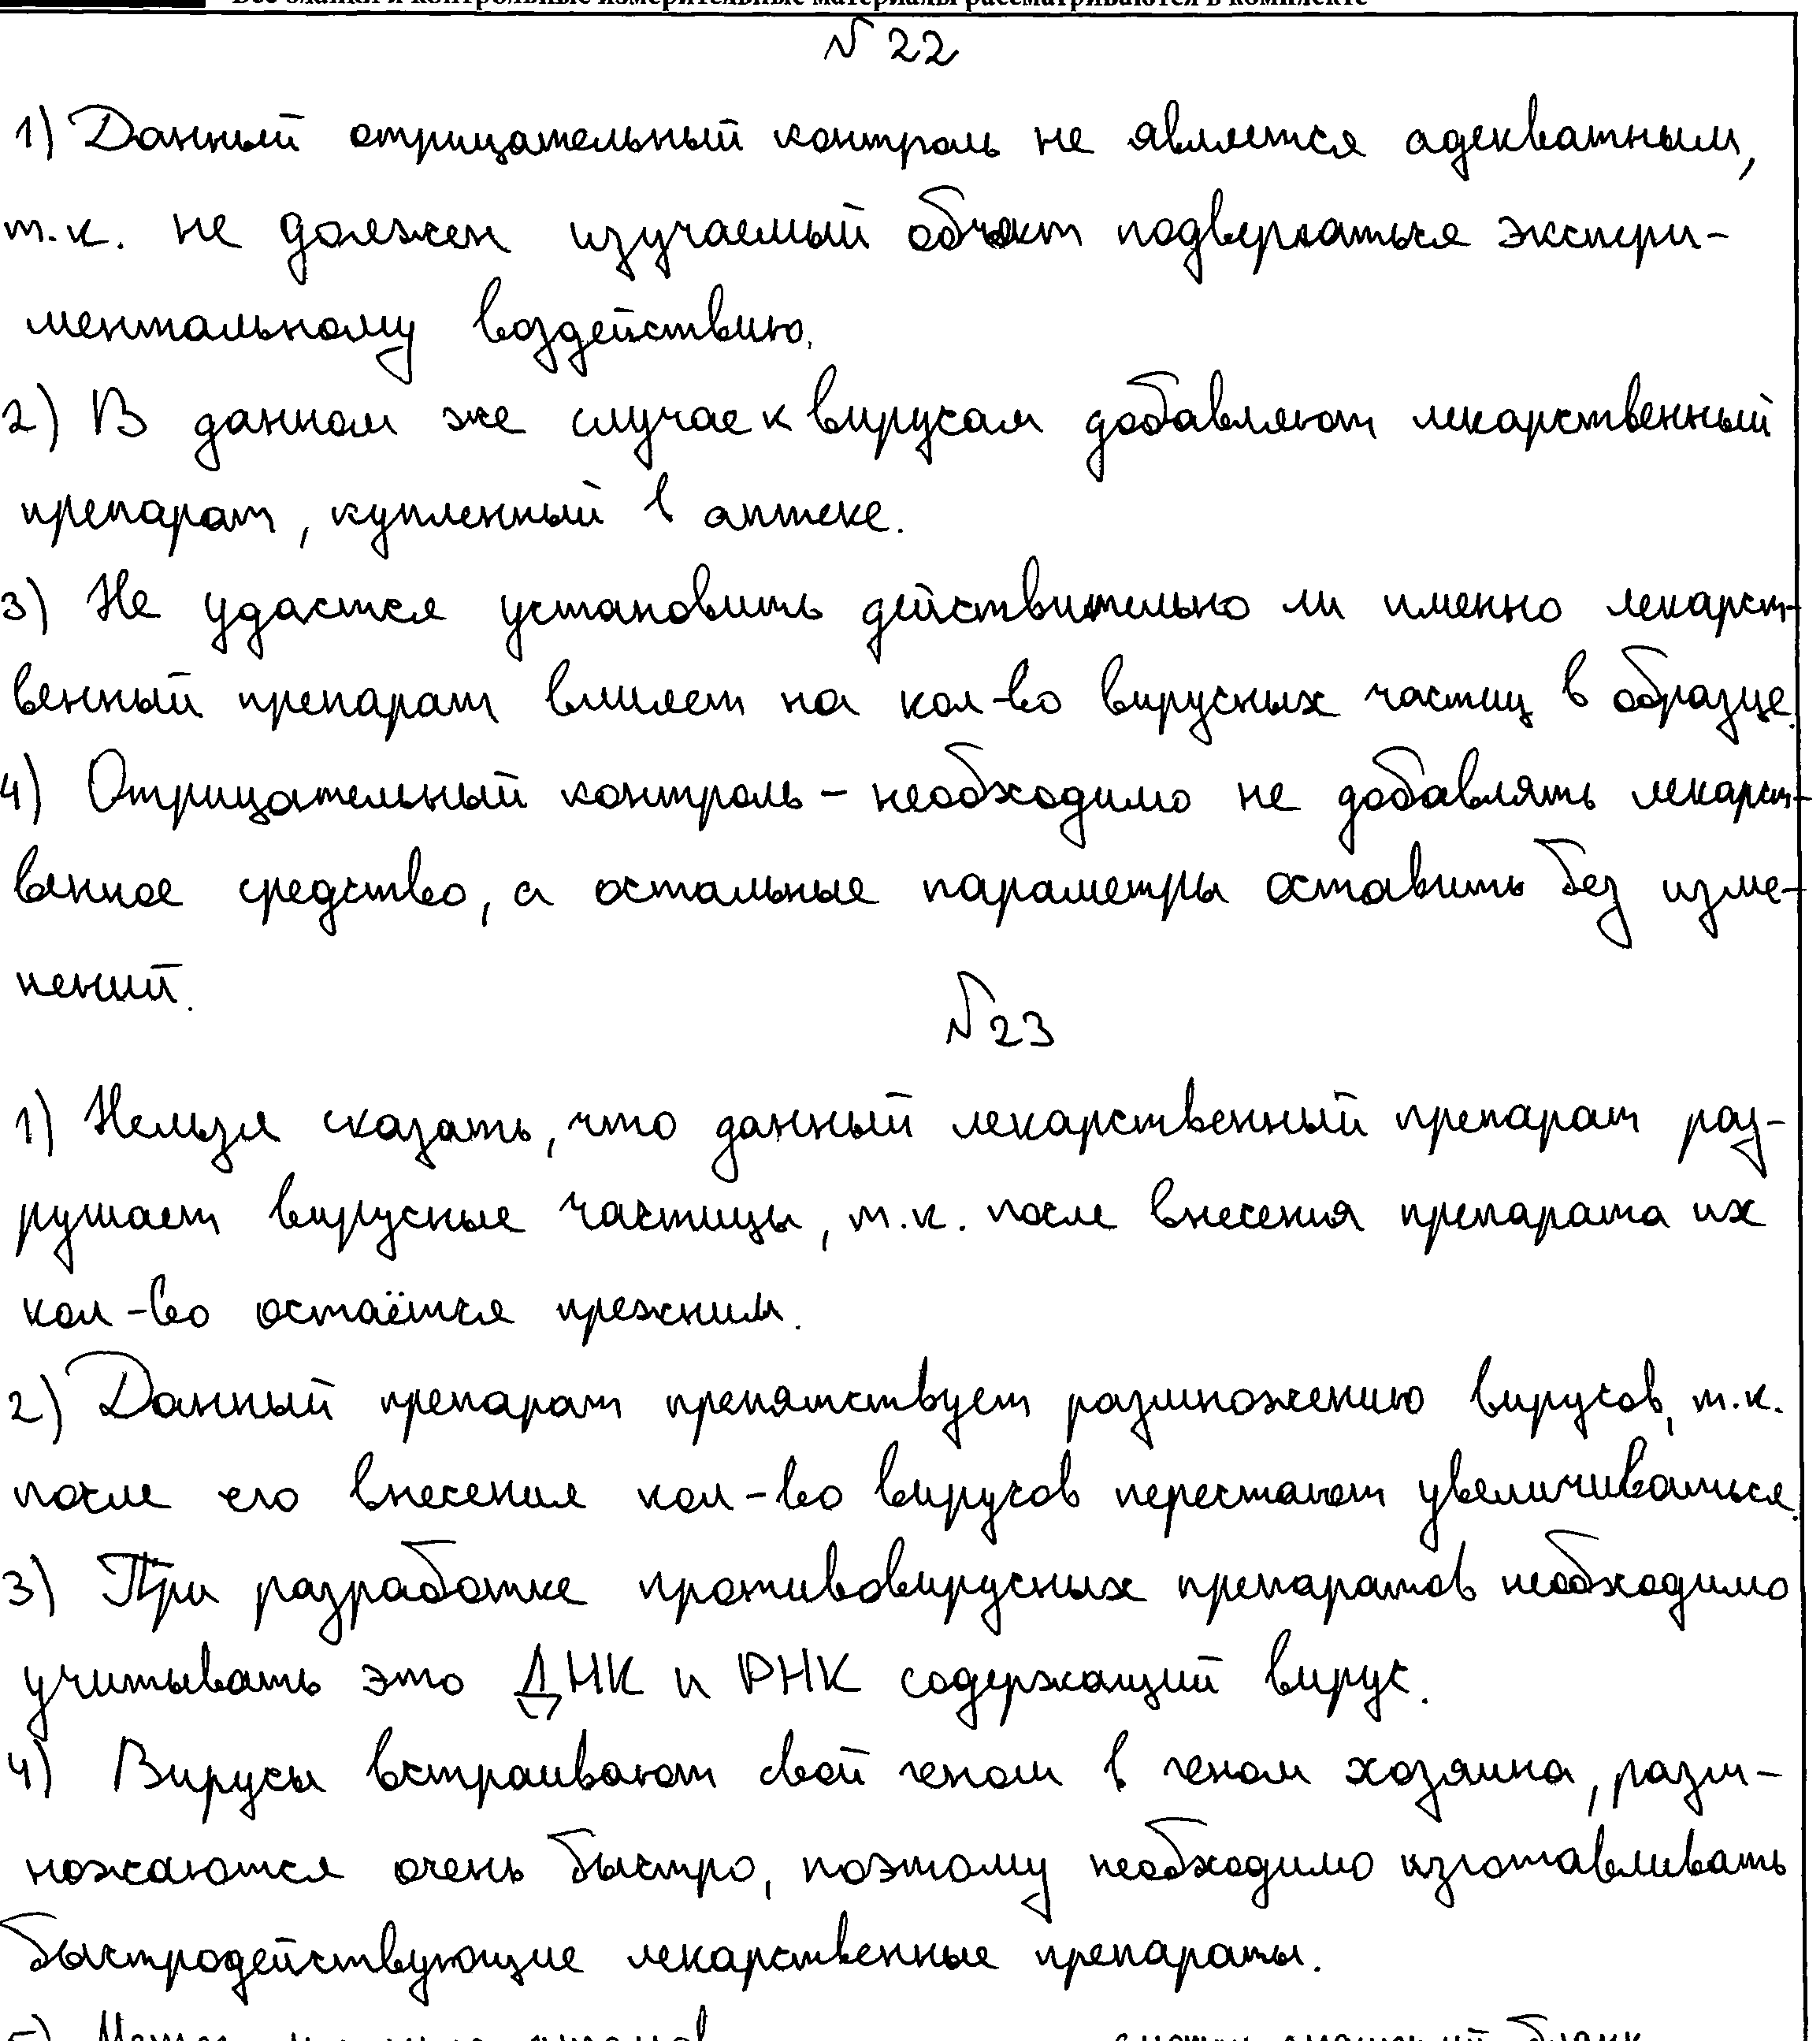 Все бланки и контрольные измерительные материалы рассматриваются в комплекте
№ 22
1) Данный отрицательный контроль не является адекватным,
т.к. не должен изучаемый объект подвергаться экспери-
ментальному воздействию.
2) В данном же случае к вирусам добавляют лекарственный
препарат, купленный в аптеке.
3) Не удастся установить действительно ли именно лекарст-
венный препарат влияет на кол-во вирусных частиц в образце.
4) Отрицательный контроль - необходимо не добавлять лекарст-
венное средство, а остальные параметры оставить без изме-
нений.
№ 23
1) Нельзя сказать, что данный лекарственный препарат раз-
рушает вирусные частицы, т.к. после внесения препарата их
кол-во остаётся прежним.
2) Данный препарат препятствует размножению вирусов, т.к.
после его внесения кол-во вирусов перестают увеличиваться.
3) При разработке противовирусных препаратов необходимо
учитывать это ДНК и РНК содержащий вирус.
4) Вирусы встраивают свой геном в геном хозяина, разм-
ножаются очень быстро, поэтому необходимо изготавливать
быстродействующие лекарственные препараты.
5)